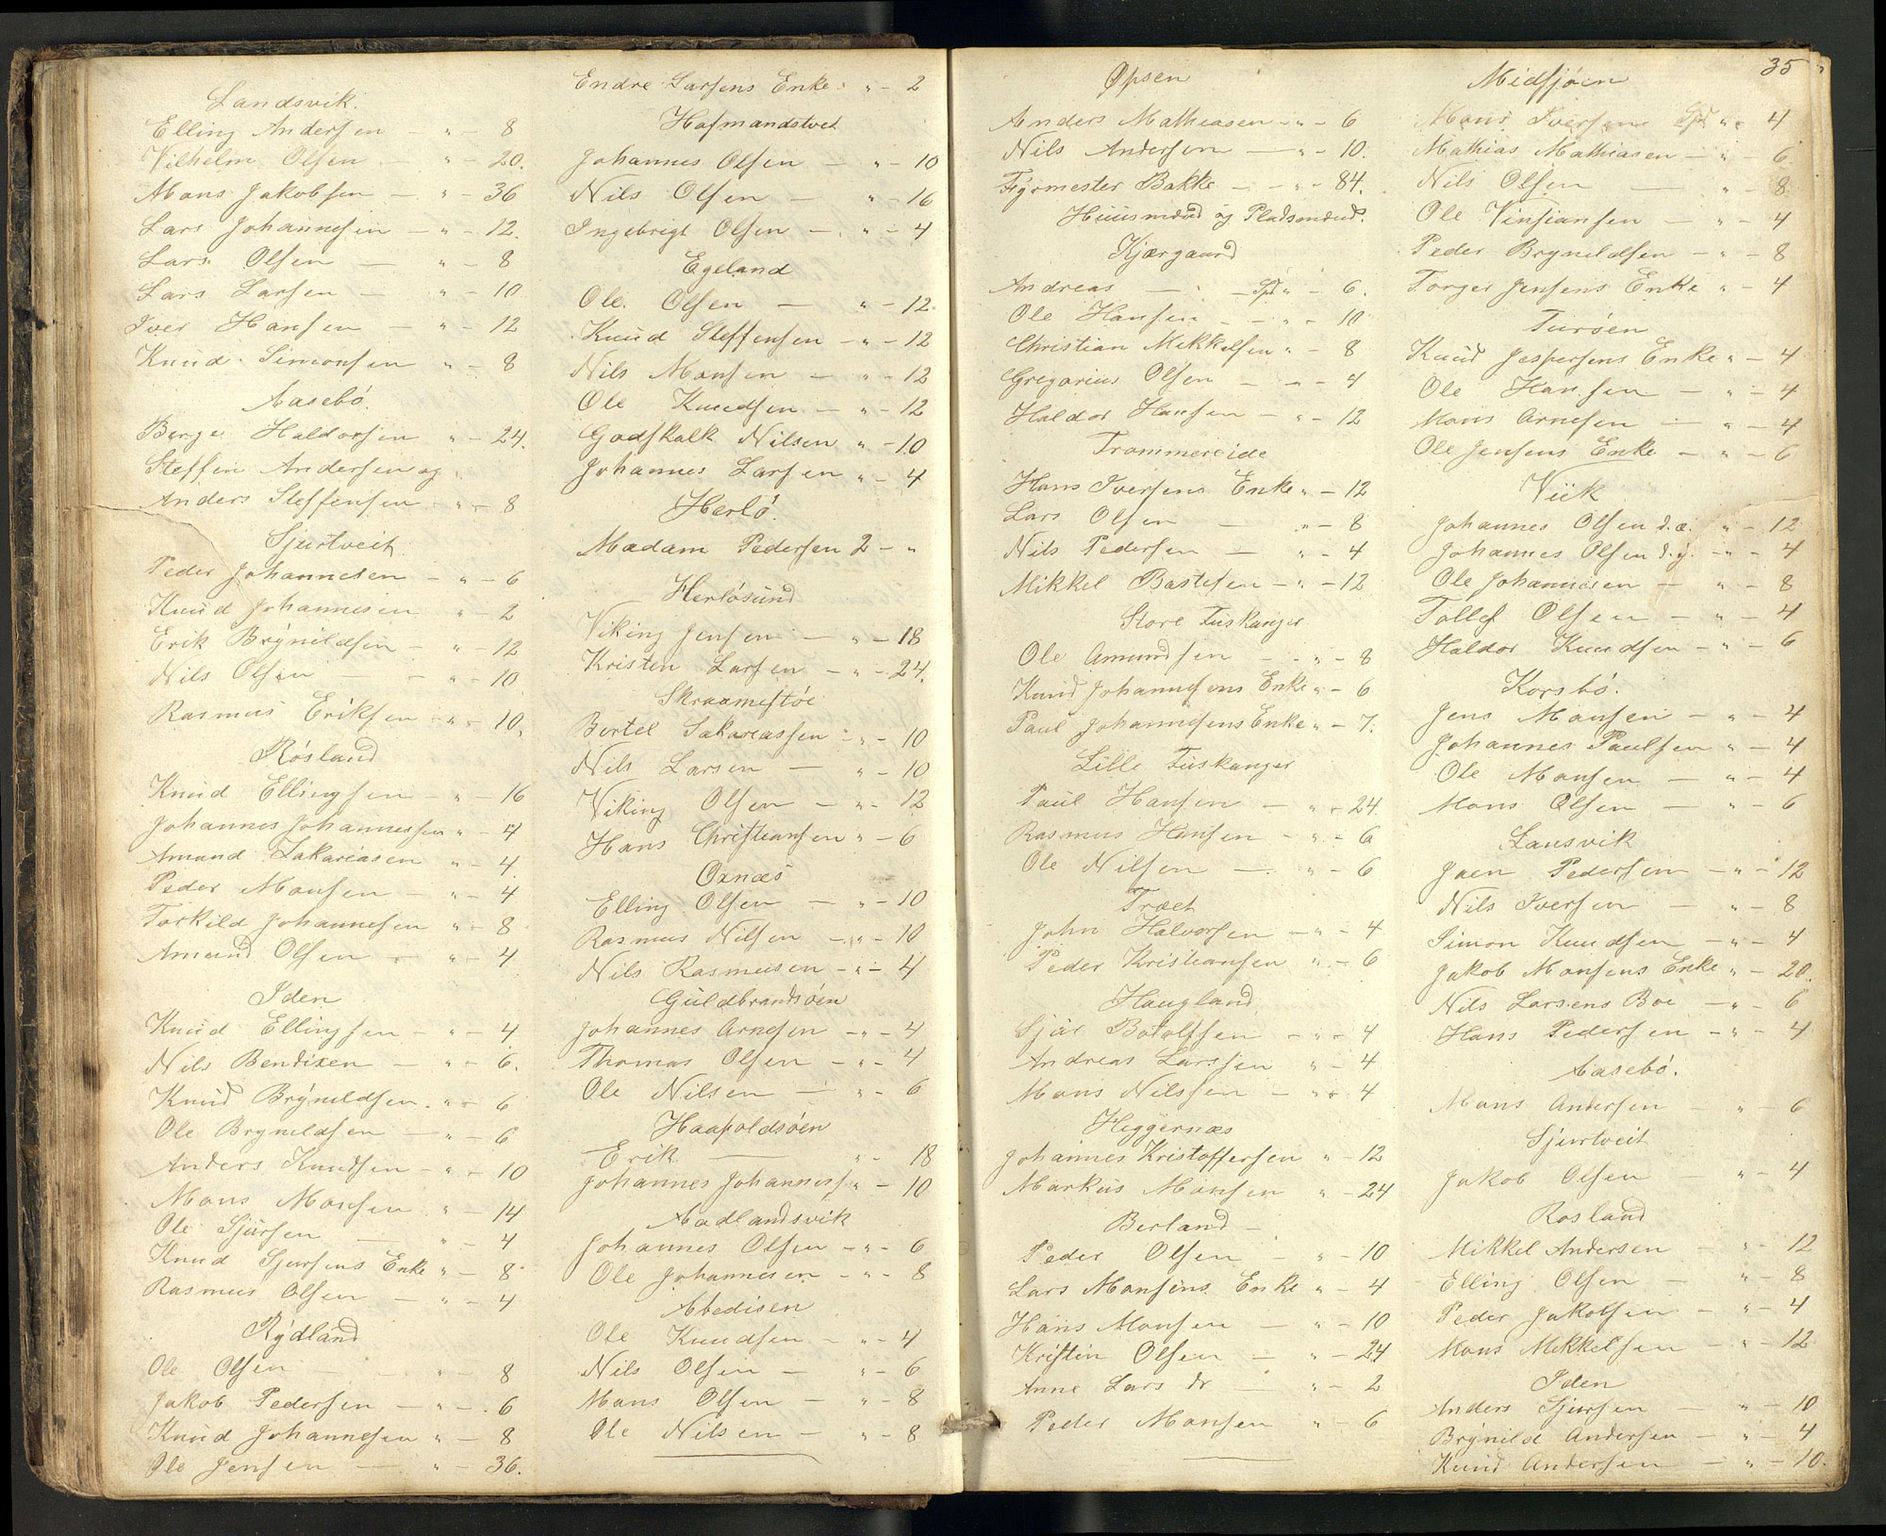 Landsvik.
Elling Andersen — " — 8
Vilhelm Olsen — " — 20.
Mons Jakobsen — " — 36
Lars Johannesen — " — 12.
Lars Olsen — " — 8
Lars Larsen — " — 10
Iver Hansen — " — 12
Knud Simonsen " — 8
Aasebö.
Berge Haldorsen " — 24.
Steffen Andersen og
Anders Steffensen " — 8
Sjurtveit
Peder Johannesen — " — 6
Knud Johannesen " — 2
Erik Brynildsen — " — 12
Nils Olsen — " — 10.
Rasmus Eriksen — " — 10.
Røsland
Knud Ellingsen — " — 16
Johannes Johannessen " — 4
Amund Sakariasen " — 4.
Peder Monsen — " — 4
Torkild Johannesen " — 8
Amund Olsen — " — 4
Iden
Knud Ellingsen — " — 4
Nils Bendixen — " — 6.
Knud Brynildsen — " — 6
Ole Brynildsen — " — 6
Anders Knudsen — " — 10
Mons Monsen " — 14
Ole Sjursen — " — 4
Knud Sjursens Enke " — 8
Rasmus Olsen — " — 4
Rydland
Ole Olsen — " — 8
Jakob Pedersen — " — 6
Knud Johannesen " — 8
Ole Jensen — " — 36.
Endre Larsens Enke " — 2
Hofmandstvet
Johannes Olsen — " — 10
Nils Olsen — " — 16
Ingebrigt Olsen — " — 4
Egeland
Ole Olsen — " — 12.
Knud Steffensen — " — 12
Nils Monsen — " — 12
Ole Knudsen — " — 12
Godskalk Nilsen " — 10
Johannes Larsen " — 4
Herlö.
Madam Pedersen 2 — "
Herlösund
Viking Jensen — " — 18
Kristen Larsen — " — 24.
Skraamestöe
Bertel Sakariassen — " — 10
Nils Larsen — " — 10
Viking Olsen — " — 12
Hans Christiansen " — 6
Oxnæs
Elling Olsen — " — 10
Rasmus Nilsen — " — 10
Nils Rasmusen — " — 4
Guldbrandsöen
Johannes Arnesen — " — 4
Thomas Olsen — " — 4
Ole Nilsen — " — 6
Haapoldsöen
Erik — " — 18
Johannes Johanness " — 10
Aadlandsvik
Johannes Olsen — " — 6
Ole Johannesen — " — 8
Abedisen
Ole Knudsen — " — 4
Nils Olsen — " — 6
Mons Olsen — " — 8
Ole Nilsen — " — 8
35
Øpsen
Anders Mathiasen — " — 6
Nils Andersen — " — 10.
Fyrmester Bakke — " — 84.
Huusmænd og Pladsmænd.
Kjærgaard
Andreas — Spd " — 6.
Ole Hansen — " — 10
Christian Mikkelsen " — 8
Gregorius Olsen — " — 4
Haldor Hansen — " — 12
Trommereide
Hans Iversens Enke " — 12
Lars Olsen — " — 8
Nils Pedersen — " — 4
Mikkel Bastesen — " — 12
Store Fuskanger
Ole Amundsen — " — 8
Knud Johannesens Enke " — 6
Paul Johannesens Enke " — 7.
Lille Fuskanger
Paul Hansen — " — 24.
Rasmus Hansen — " — 6
Ole Nilsen — " — 6
Træet
John Halvorsen — " — 4
Peder Kristiansen " — 6
Haugland
Sjur Bototfsen — " — 4
Andreas Larssen " — 4
Mons Nilssen — " — 4
Heggernæs
Johannes Kristoffersen " — 12
Markus Monsen " — 24
Berland —
Peder Olsen — " — 10
Lars Monsens Enke " — 4
Hans Monsen — " — 10
Kristen Olsen — " — 24
Anne Lars dr — " — 2
Peder Monsen " — 6
Midsjöen
Mons Iversen Spd " — 4
Mathias Mathiasen — " — 6.
Nils Olsen — " — 8
Ole Vinsiansen — " — 4
Peder Brynildsen — " — 8
Torger Jensens Enke " — 4
Turöen
Knud Jespersens Enke " — 4
Ole Hansen — " — 4
Mons Arnesen — " — 4
Ole Jensens Enke — " — 6
Viik
Johannes Olsen d.æ. " — 12
Johannes Olsen d.y. — " — 4
Ole Johannesen — " — 8
Tollef Olsen — " — 4
Haldor Knudsen — " — 6
Korsbö.
Jens Monsen — " — 4
Johannes Paulsen " — 4
Ole Monsen — " — 4
Mons Olsen — " — 6
Lansvik
Joen Pedersen — " — 12
Nils Iversen — " — 8
Simon Knudsen — " — 4
Jakob Monsens Enke " — 20.
Nils Larsens Boe — " — 6
Hans Pedersen — " — 4
Aasebö.
Mons Andersen — " — 6
Sjurtveit
Jakob Olsen — " — 4
Rosland
Mikkel Andersen — " — 12
Elling Olsen — " — 8
Peder Jakobsen — " — 4
Mons Mikkelsen — " — 12
Iden
Anders Sjursen — " — 10
Brynild Andersen — " — 4
Knud Andersen — " — 10.